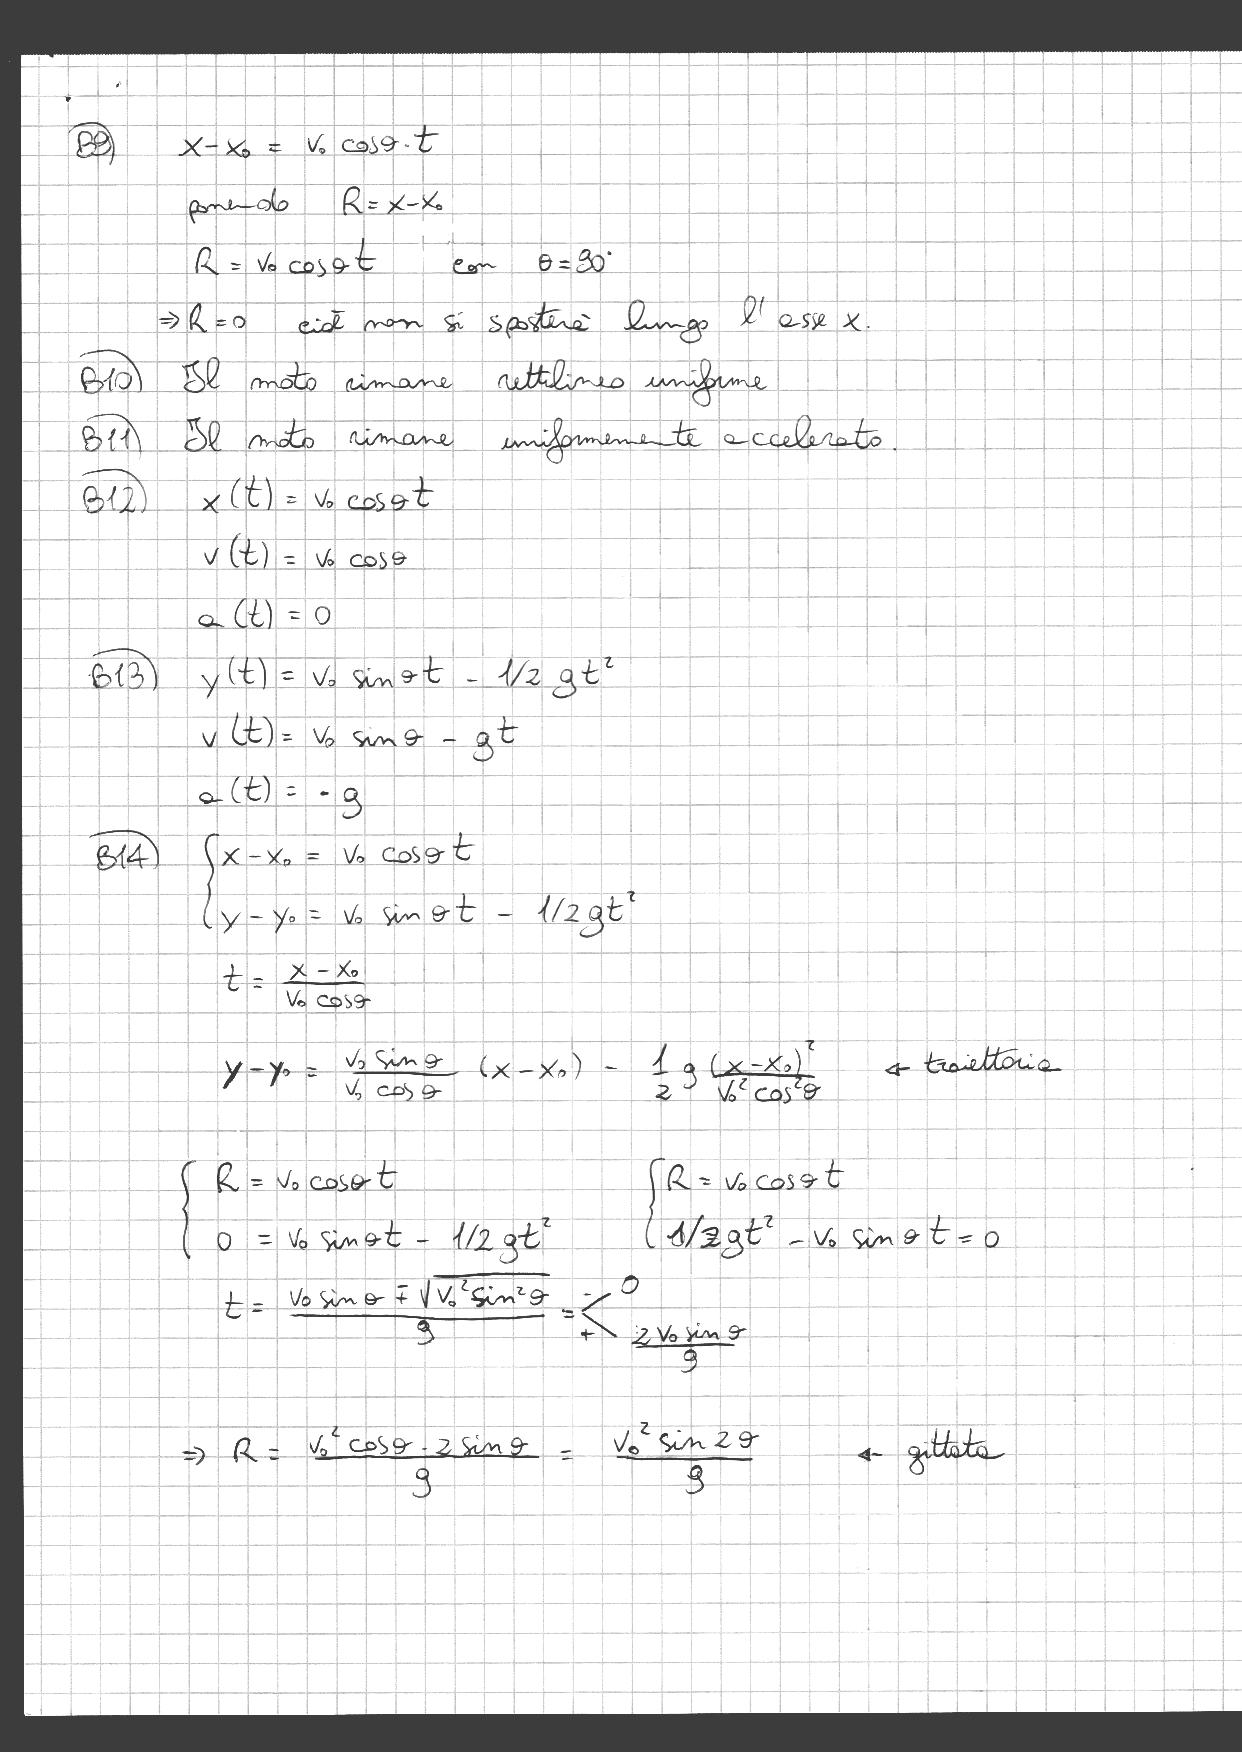 B9) x-x₀ = v₀ cosθ·t
ponendo R = x-x₀
R = v₀ cosθt con θ=90°
⇒ R=0 cioè non si sposterà lungo l'asse x.
B10) Il moto rimane rettilineo uniforme
B11) Il moto rimane uniformemente accelerato.
B12) x(t) = v₀ cosθt
v(t) = v₀ cosθ
a(t) = 0
B13) y(t) = v₀ sinθt - 1/2 gt²
v(t) = v₀ sinθ - gt
a(t) = -g
B14) { x-x₀ = v₀ cosθt
y-y₀ = v₀ sinθt - 1/2gt²
t = (x-x₀)/(v₀ cosθ)
y-y₀ = (v₀ sinθ)/(v₀ cosθ) (x-x₀) - 1/2 g (x-x₀)²/(v₀² cos²θ) ← traiettoria
{ R = v₀ cosθt { R = v₀ cosθt
0 = v₀ sinθt - 1/2 gt² 1/2gt² - v₀ sinθt = 0
t = (v₀ sinθ ∓ √(v₀² sin²θ))/g = - 0
+ (2v₀ sinθ)/g
⇒ R = (v₀² cosθ·2 sinθ)/g = (v₀² sin2θ)/g ← gittata